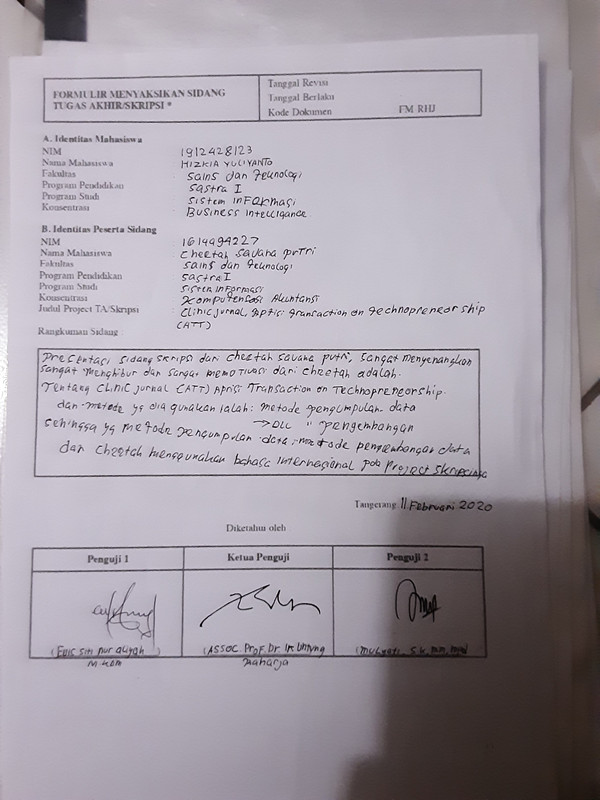 FORMULIR MENYAKSIKAN SIDANG
TUGAS AKHIR/SKRIPSI *
Tanggal Revisi
Tanggal Berlaku
Kode Dokumen FM RHJ
A. Identitas Mahasiswa
NIM : 1912428123
Nama Mahasiswa : HIZKIA YULIYANTO
Fakultas : Sains dan Teknologi
Program Pendidikan : Sastra I
Program Studi : Sistem inFORmasi
Konsentrasi : Business intelligance
B. Identitas Peserta Sidang
NIM : 1614494227
Nama Mahasiswa : Cheetah savana putri
Fakultas : Sains dan Teknologi
Program Pendidikan : Sastra I
Program Studi : Sistem informasi
Konsentrasi : Komputerisasi Akuntansi
Judul Project TA/Skripsi : CLinic jurnal, Aptisi transaction on technopreneor ship
(ATT)
Rangkuman Sidang
Presentasi sidang skripsi dari cheetah savana putri, sangat menyenangkan
sangat menghibur dan sangat memotivasi dari cheetah adalah.
Tentang CLiniC jurnal (ATT) Aptisi Transaction on Technopreneorship.
dan metode yg dia gunakan ialah: metode pengumpulan data
→ DLL " pengembangan
sehingga yg metode pengumpulan data, metode pengembangan data
dan Cheetah menggunakan bahasa Internasional pada Project skripsinya
Tangerang 11 Februari 2020
Diketahui oleh
Penguji 1 Ketua Penguji Penguji 2
(Euis siti nur aisyah) (ASSOC. Prof. Dr. Ir. Untung (Mulyati, S.E,
M.kom Raharja